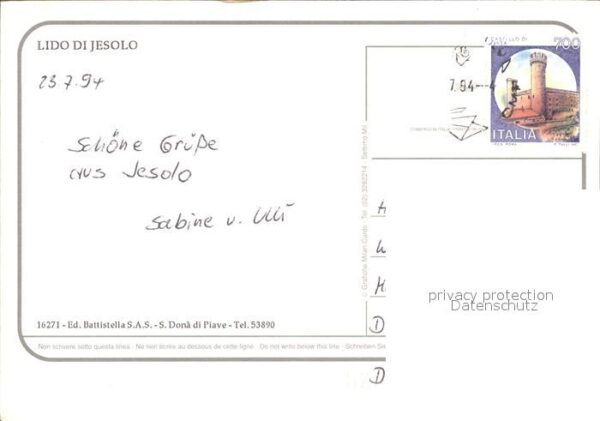 LIDO DI JESOLO
23.7.94
CASTELLO DI
700
7.94--4
Schöne Grüße
aus Jesolo
Sabine u. Ulli
ITALIA
© Grafiche Milani Curdo Tel. (02) 3282214 Settimo Mil.
H
D
D
privacy protection
Datenschutz
16271 - Ed. Battistella S.A.S. - S. Donà di Piave - Tel. 53890
Non scrivere sotto questa linea - Ne rien écrire au dessous de cette ligne - Do not write below this line - Schreiben Sie